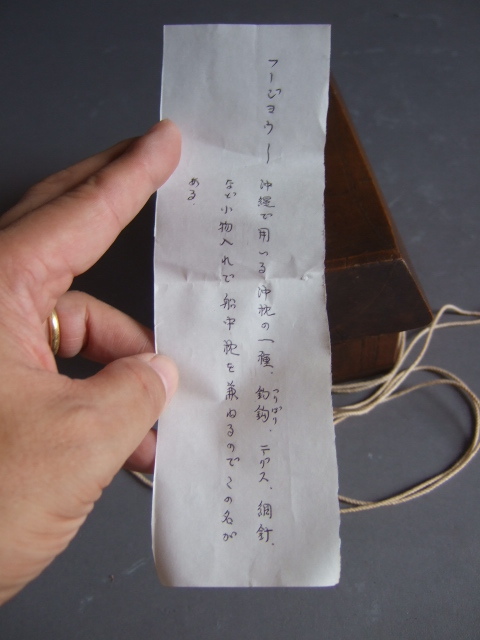 フージョウー 沖縄で用いる沖枕の一種、釣鈎、テグス、網針、
など小物入れで船中枕を兼ねるのでこの名が
ある.
つりばり